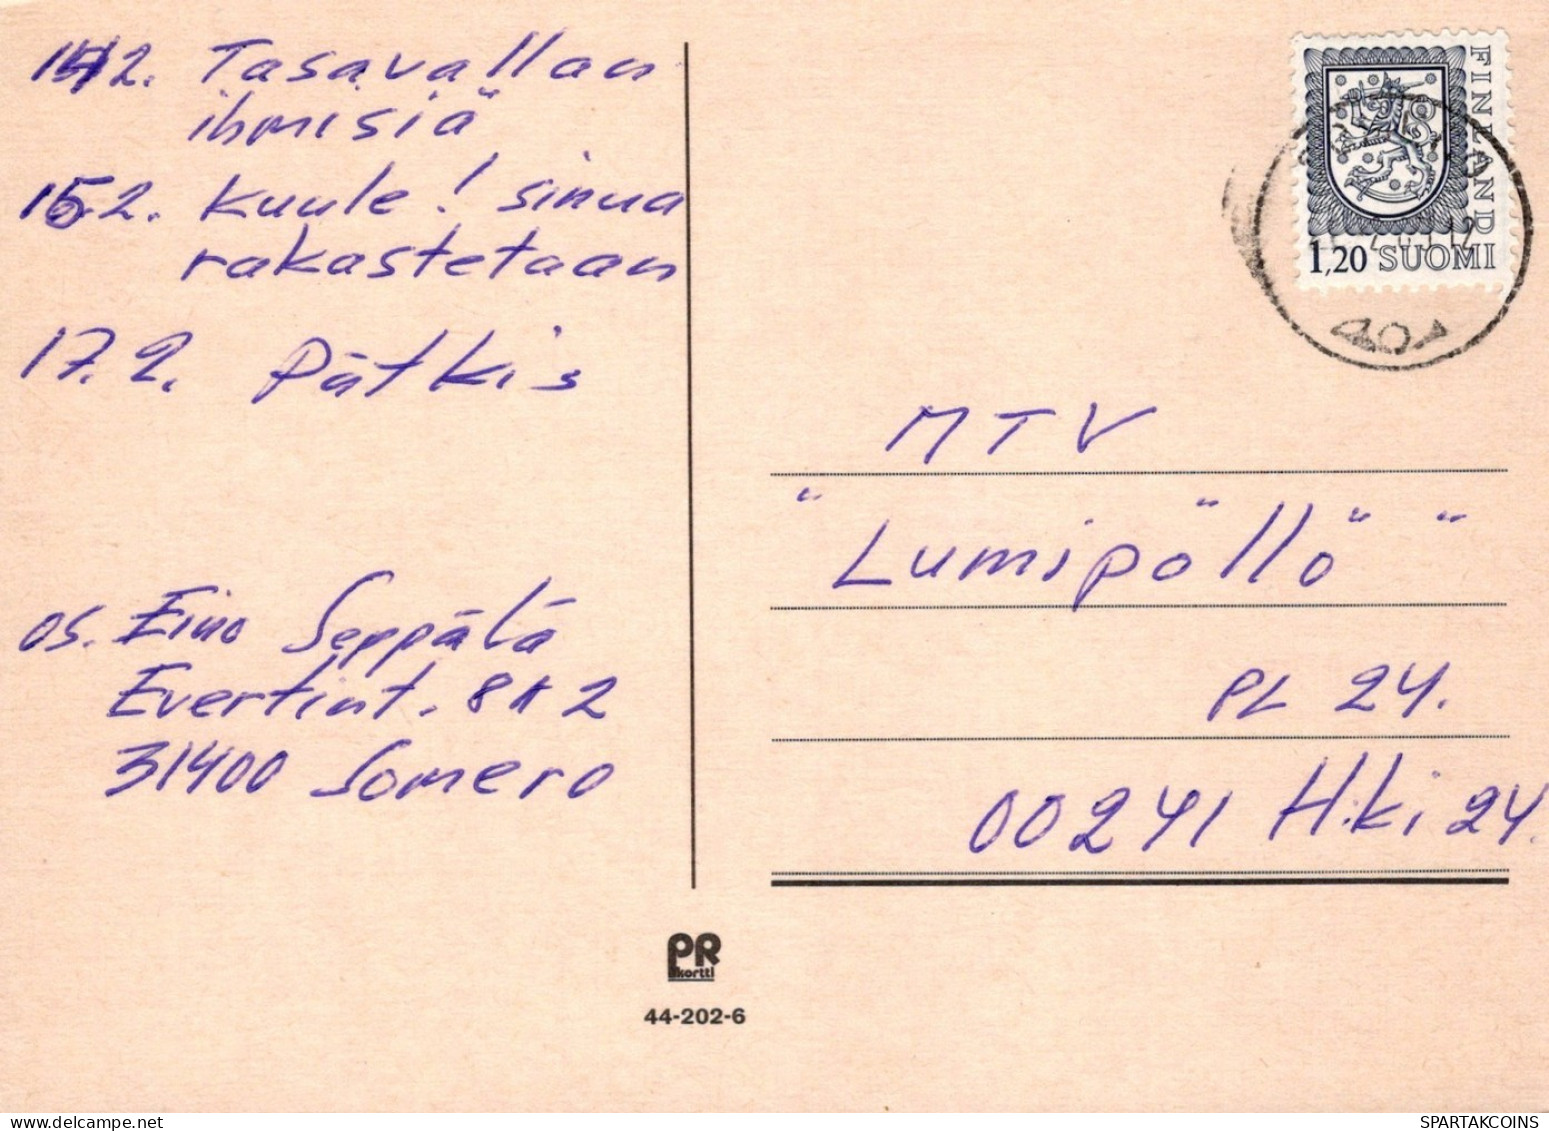 14.2. Tasavallan
ihmisiä
15.2. Kuule! sinua
rakastetaan
17.2. Pätkis
os. Eino Seppälä
Evertint. 8 A 2
31400 Somero
FINLAND
1,20 SUOMI
MTV
"Lumipöllö"
PL 24.
00241 H:ki 24.
PR
kortti
44-202-6
SPARTAKCOINS